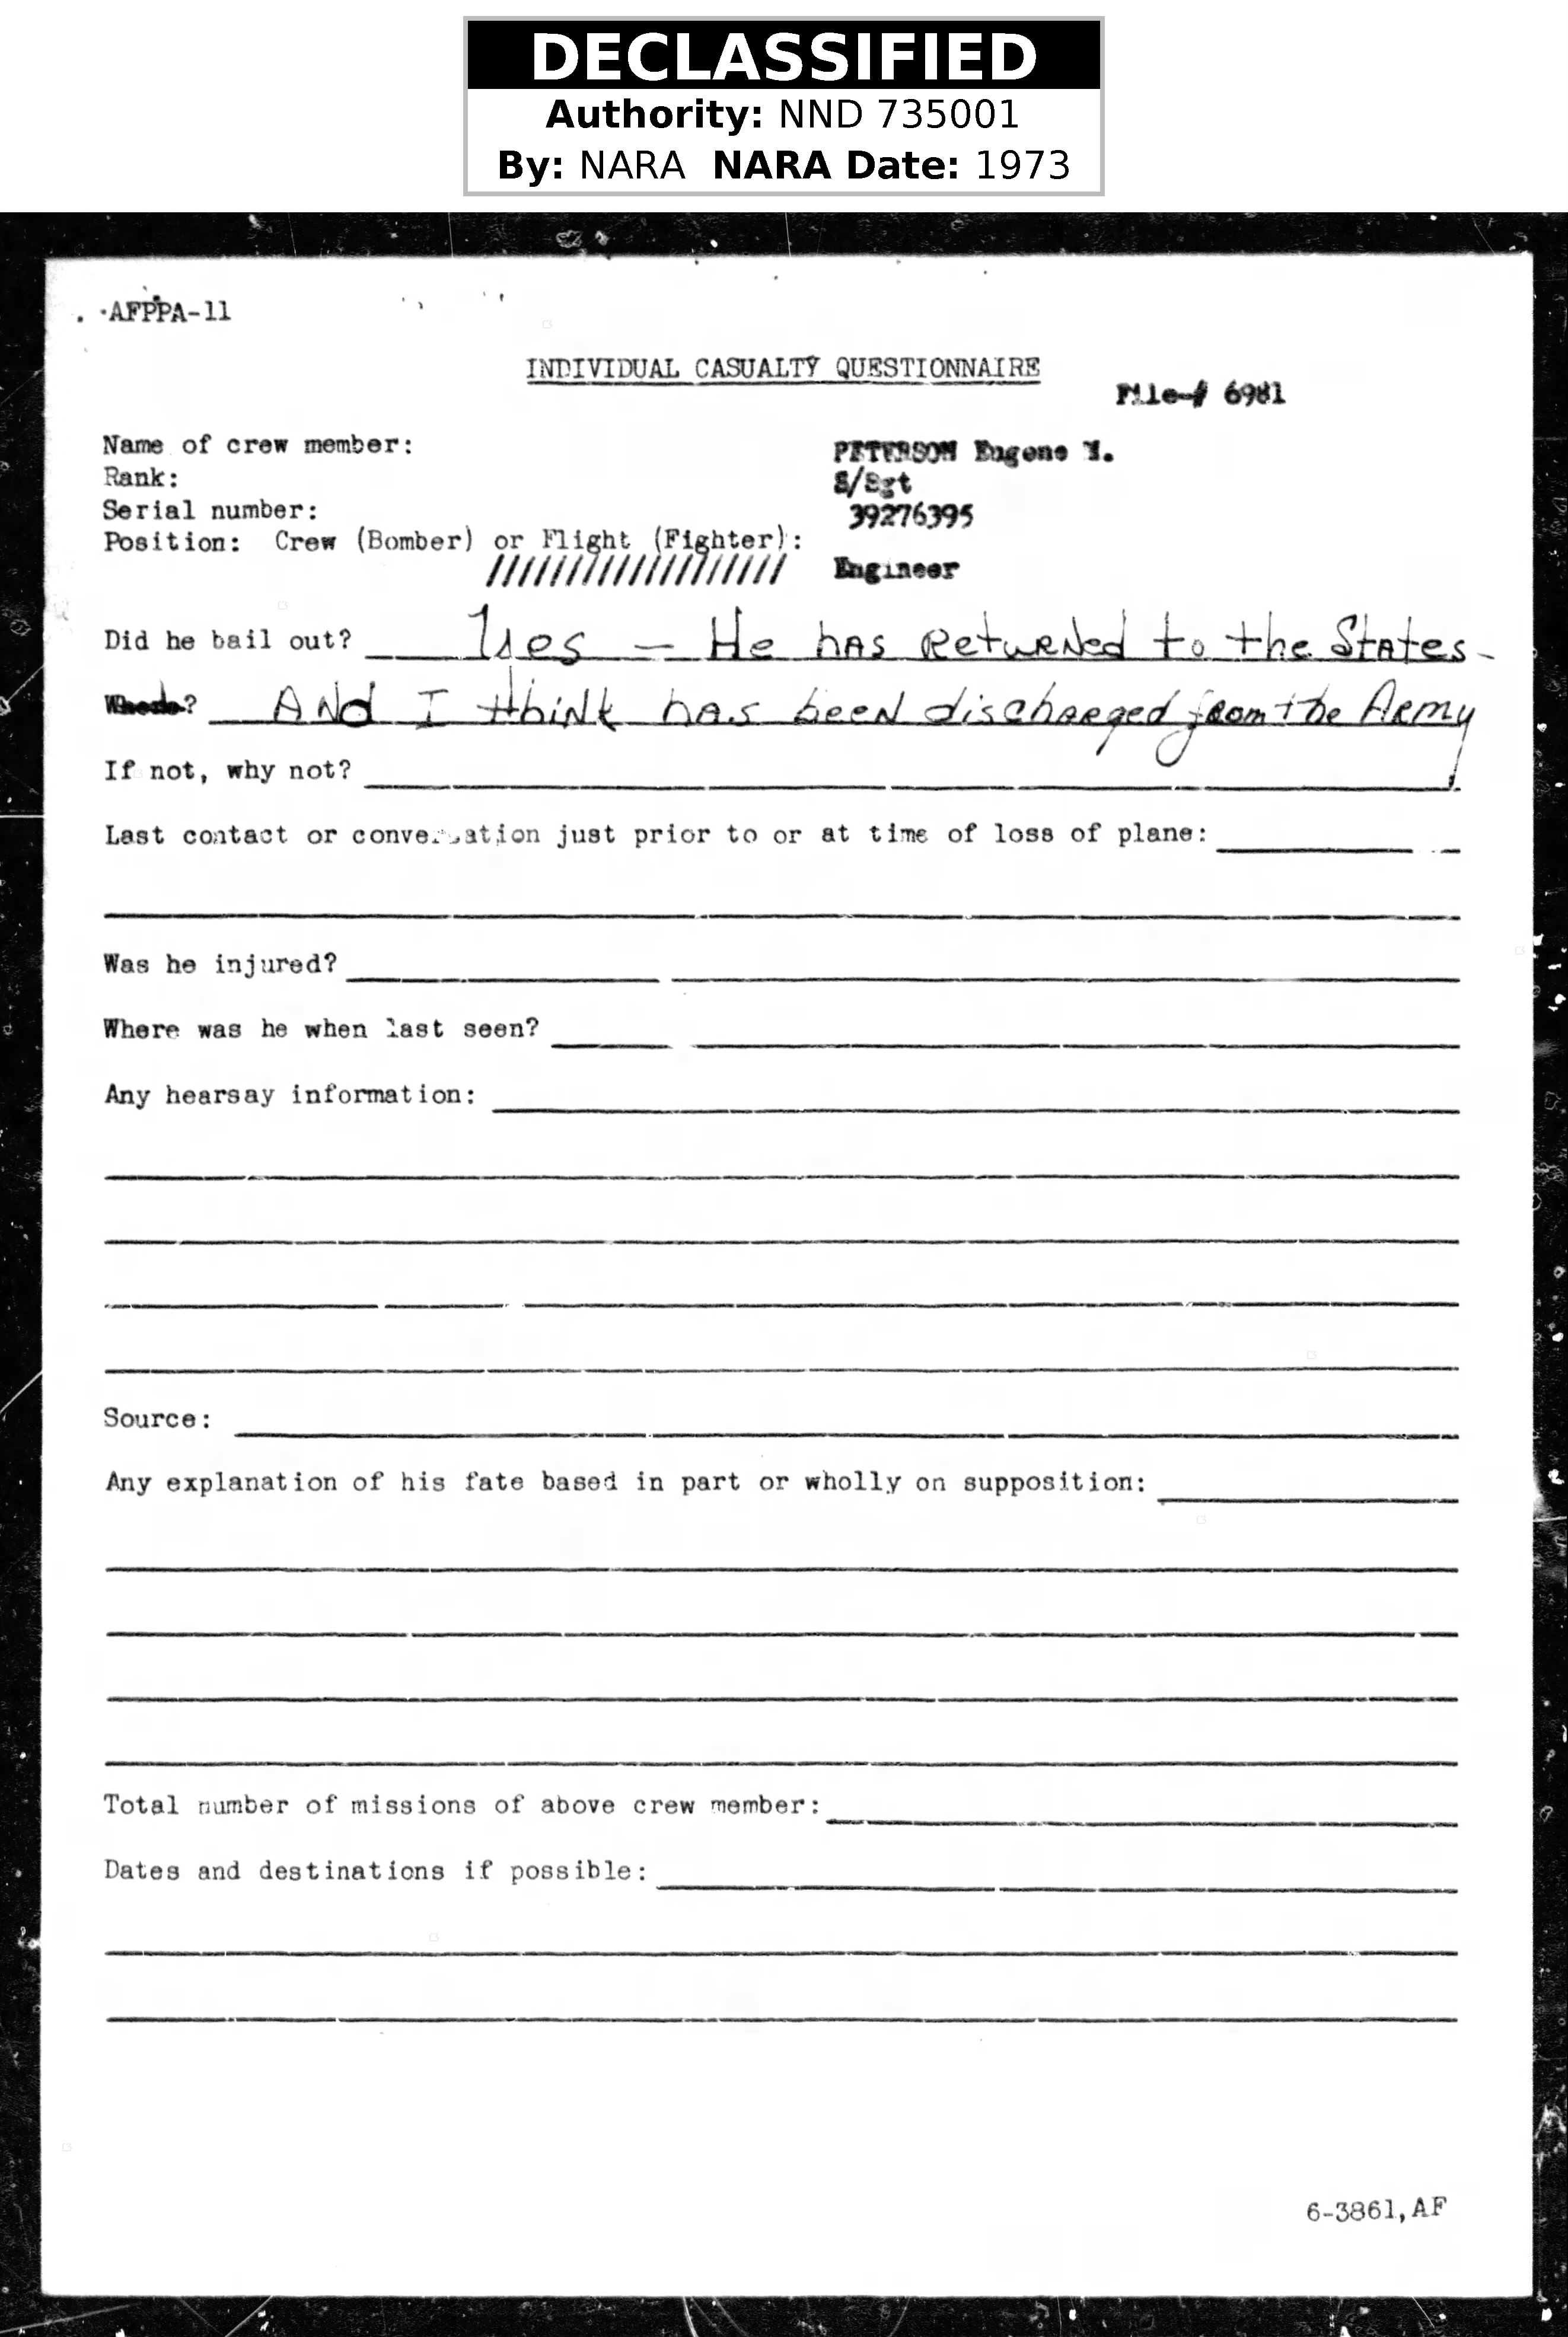 DECLASSIFIED
Authority: NND 735001
By: NARA NARA Date: 1973
AFPPA-11
INDIVIDUAL CASUALTY QUESTIONNAIRE
File # 6981
Name of crew member: PETERSON Eugene
Rank: S/Sgt
Serial number: 39276395
Position: Crew (Bomber) or Flight (Fighter):
////////////////// Engineer
Did he bail out? Yes — He has Returned to the States -
Where? And I think has been discharged from the Army
If not, why not?
Last contact or conversation just prior to or at time of loss of plane:
Was he injured?
Where was he when last seen?
Any hearsay information:
Source:
Any explanation of his fate based in part or wholly on supposition:
Total number of missions of above crew member:
Dates and destinations if possible:
6-3861, AF